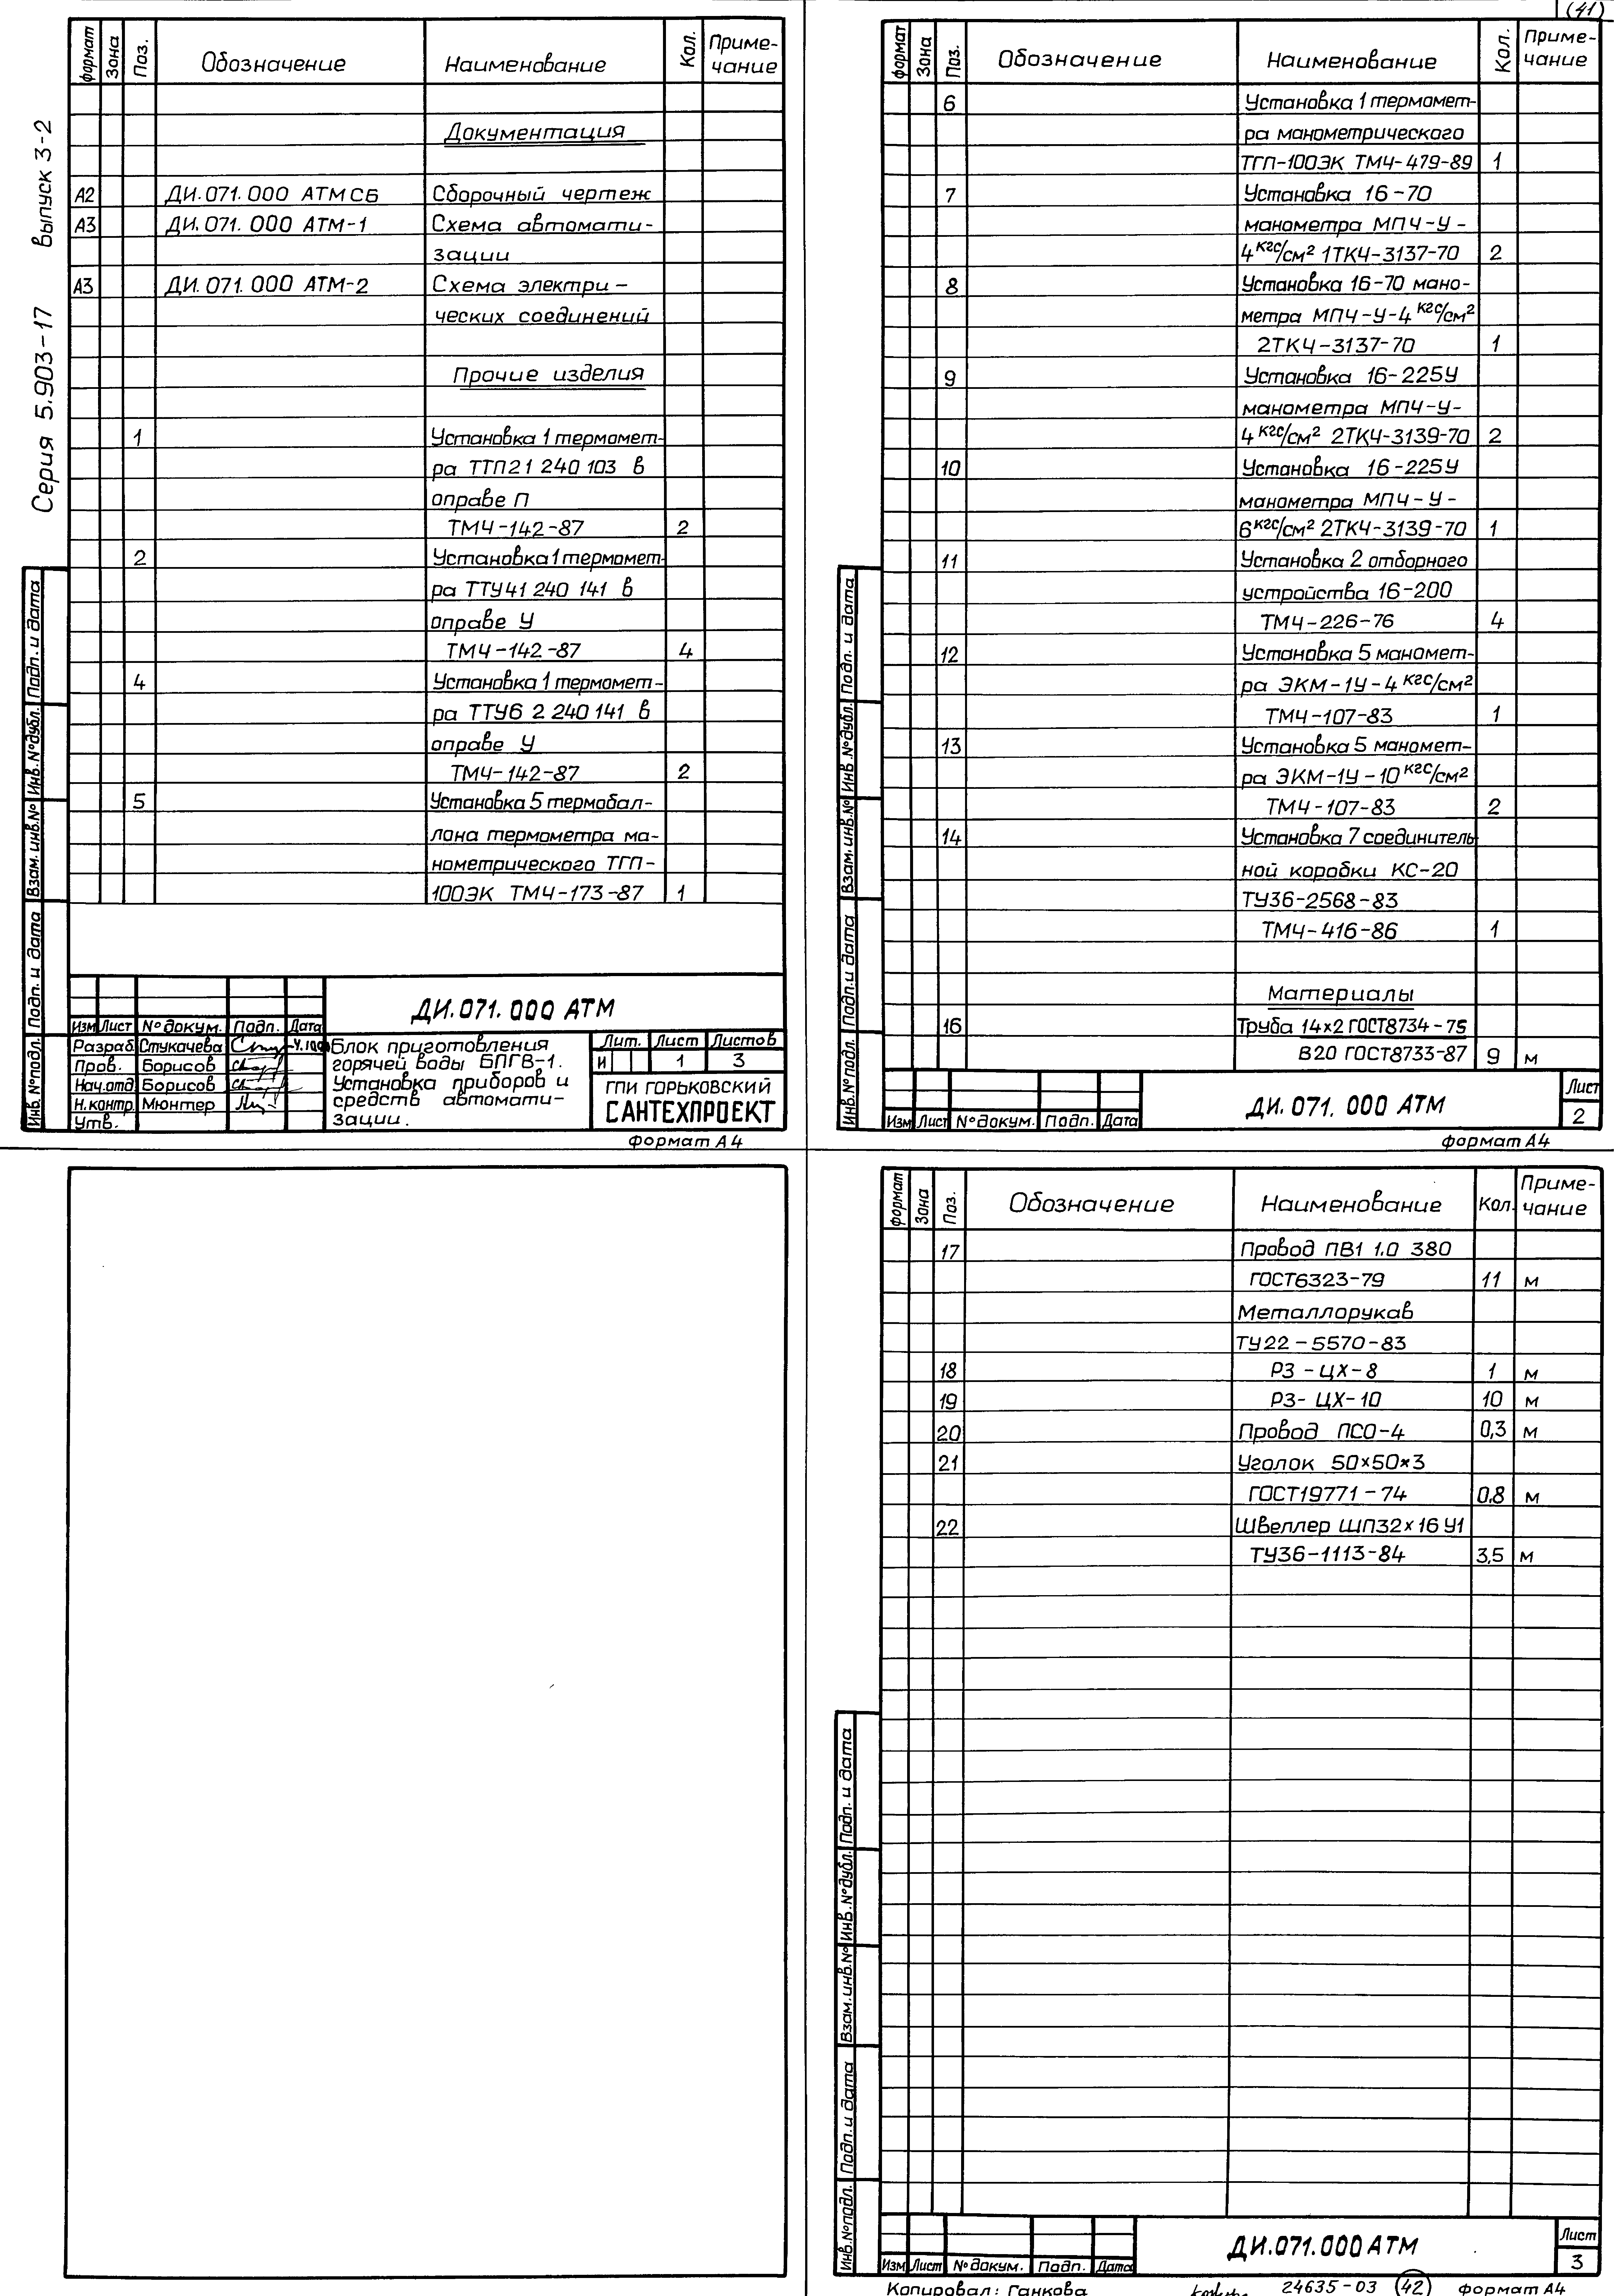 (41)
Серия 5.903-17 Выпуск 3-2
формат Зона Поз. Обозначение Наименование Кол. Приме-
чание
Документация
А2 ДИ.071.000 АТМ СБ Сборочный чертеж
А3 ДИ.071.000 АТМ-1 Схема автомати-
зации
А3 ДИ.071.000 АТМ-2 Схема электри-
ческих соединений
Прочие изделия
1 Установка 1 термомет-
ра ТТП21 240 103 в
оправе П
ТМ4-142-87 2
2 Установка 1 термомет-
ра ТТУ41 240 141 в
оправе У
ТМ4-142-87 4
4 Установка 1 термомет-
ра ТТУ6 2 240 141 в
оправе У
ТМ4-142-87 2
5 Установка 5 термобал-
лона термометра ма-
нометрического ТГП-
100ЭК ТМ4-173-87 1
Инв.№подл. Подп. и дата Взам.инв.№ Инв.№дубл. Подп. и дата
ДИ.071.000 АТМ
Изм Лист № докум. Подп. Дата
Разраб. Стукачева
Пров. Борисов
Нач.отд. Борисов
Н.контр. Мюнтер
Утв.
Блок приготовления
горячей воды БПГВ-1.
Установка приборов и
средств автомати-
зации.
Лит. Лист Листов
И 1 3
ГПИ ГОРЬКОВСКИЙ
САНТЕХПРОЕКТ
формат А4
формат Зона Поз. Обозначение Наименование Кол. Приме-
чание
6 Установка 1 термомет-
ра манометрического
ТГП-100ЭК ТМ4-479-89 1
7 Установка 16-70
манометра МП4-У-
4 кгс/см² 1ТК4-3137-70 2
8 Установка 16-70 мано-
метра МП4-У-4 кгс/см²
2ТК4-3137-70 1
9 Установка 16-225У
манометра МП4-У-
4 кгс/см² 2ТК4-3139-70 2
10 Установка 16-225У
манометра МП4-У-
6 кгс/см² 2ТК4-3139-70 1
11 Установка 2 отборного
устройства 16-200
ТМ4-226-76 4
12 Установка 5 маномет-
ра ЭКМ-1У-4 кгс/см²
ТМ4-107-83 1
13 Установка 5 маномет-
ра ЭКМ-1У-10 кгс/см²
ТМ4-107-83 2
14 Установка 7 соединитель
ной коробки КС-20
ТУ36-2568-83
ТМ4-416-86 1
Материалы
16 Труба 14х2 ГОСТ8734-75
В20 ГОСТ8733-87 9 м
Инв.№подл. Подп.и дата Взам.инв.№ Инв №дубл. Подп. и дата
Изм Лист № докум. Подп. Дата
ДИ.071.000 АТМ
Лист
2
формат А4
формат Зона Поз. Обозначение Наименование Кол. Приме-
чание
17 Провод ПВ1 1.0 380
ГОСТ6323-79 11 м
Металлорукав
ТУ22-5570-83
18 РЗ-ЦХ-8 1 м
19 РЗ-ЦХ-10 10 м
20 Провод ПСО-4 0,3 м
21 Уголок 50х50х3
ГОСТ19771-74 0,8 м
22 Швеллер ШП32х16 У1
ТУ36-1113-84 3,5 м
Инв.№подл. Подп.и дата Взам.инв.№ Инв.№дубл. Подп. и дата
Изм Лист № докум. Подп. Дата
ДИ.071.000 АТМ
Лист
3
Копировал: Ганкова 24635-03 (42) формат А4